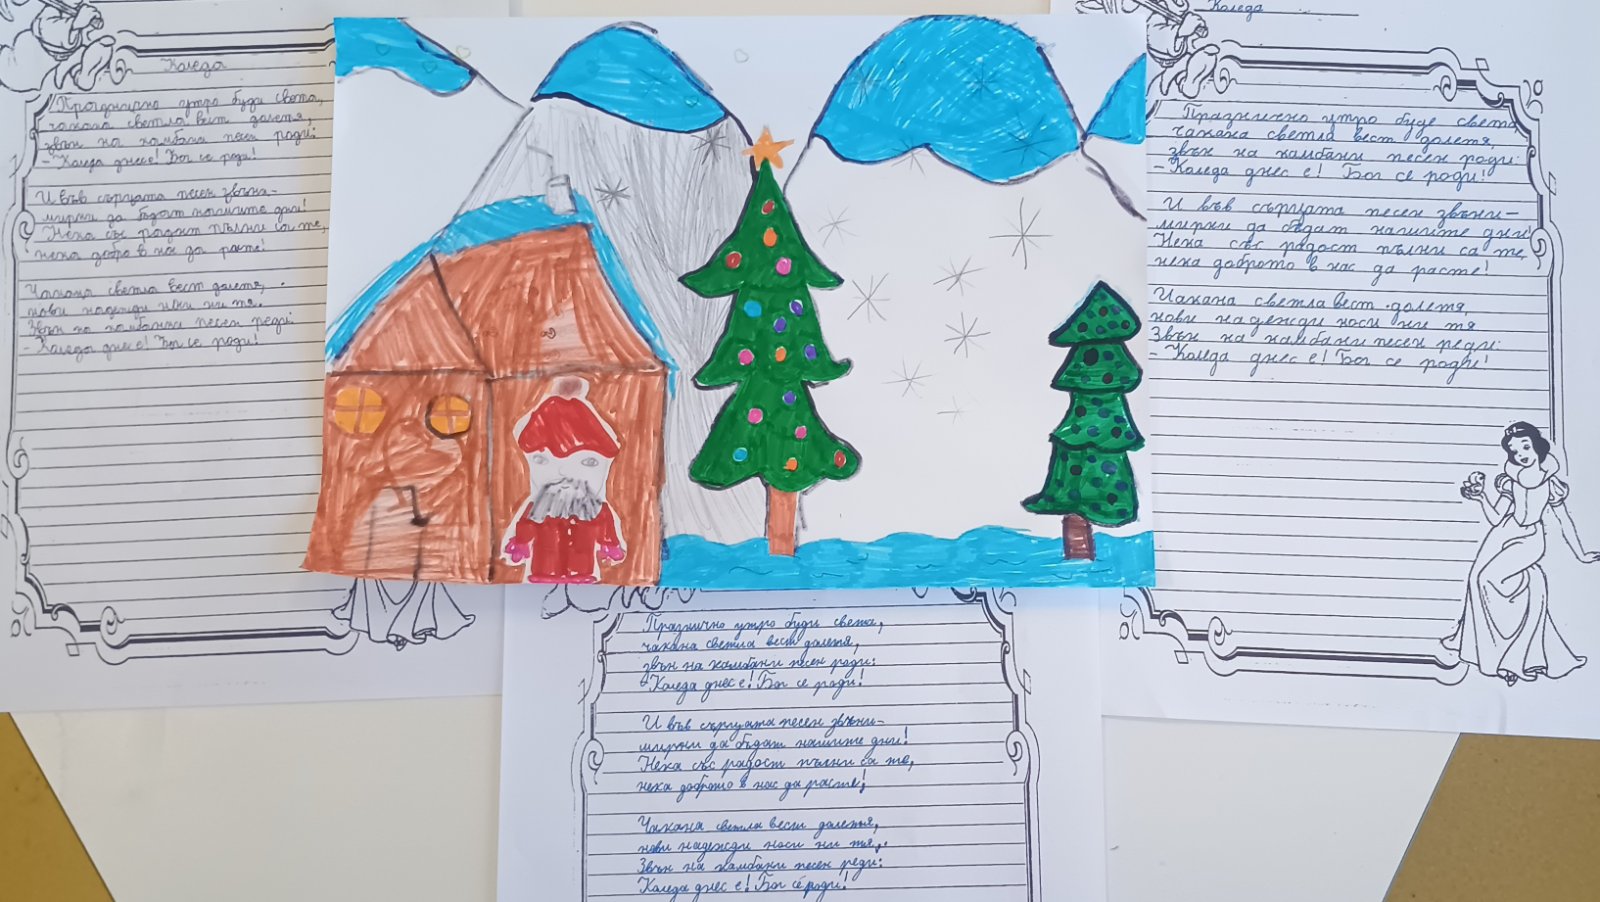 Коледа
Празнично утро буди света,
чакана светла вест долетя,
звън на камбана песен роди:
- Коледа днес е! Бог се роди!
И във сърцата песен звъна-
мирни да бъдат нашите дни!
Нека със радост пълни са те,
нека добро в нас да расте!
Чакана светла вест долетя,
нови надежди носи ни тя.
Звън на камбанка песен реди:
- Коледа днес е! Бог се роди!
Празнично утро буди света,
чакана светла вест долетя,
звън на камбани песен роди:
- Коледа днес е! Бог се роди!
И във сърцата песен звъни-
мирни да бъдат нашите дни!
Нека със радост пълни са те,
нека доброто в нас да расте!
Чакана светла вест долетя,
нови надежди носи ни тя,
Звън на камбани песен реди:
Коледа днес е! Бог се роди!
Коледа
Празнично утро буде света
чакана светла вест долетя,
звън на камбани песен роди:
- Коледа днес е! Бог се роди!
И във сърцата песен звъни-
мирни да бъдат нашите дни!
Нека със радост пълни са те,
нека доброто в нас да расте!
Чакана светла вест долетя,
нови надежди носи ни тя
Звън на камбани песен реди:
- Коледа днес е! Бог се роди!